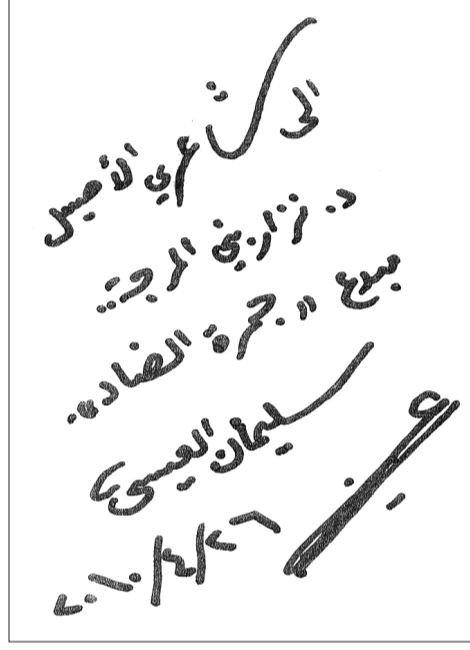 الى شاعري الأصيل
د. نزار بني المرجة
مبدع "جمرة الضاد".
سليمان العيسى
٢٠١٠/٤/٢٦